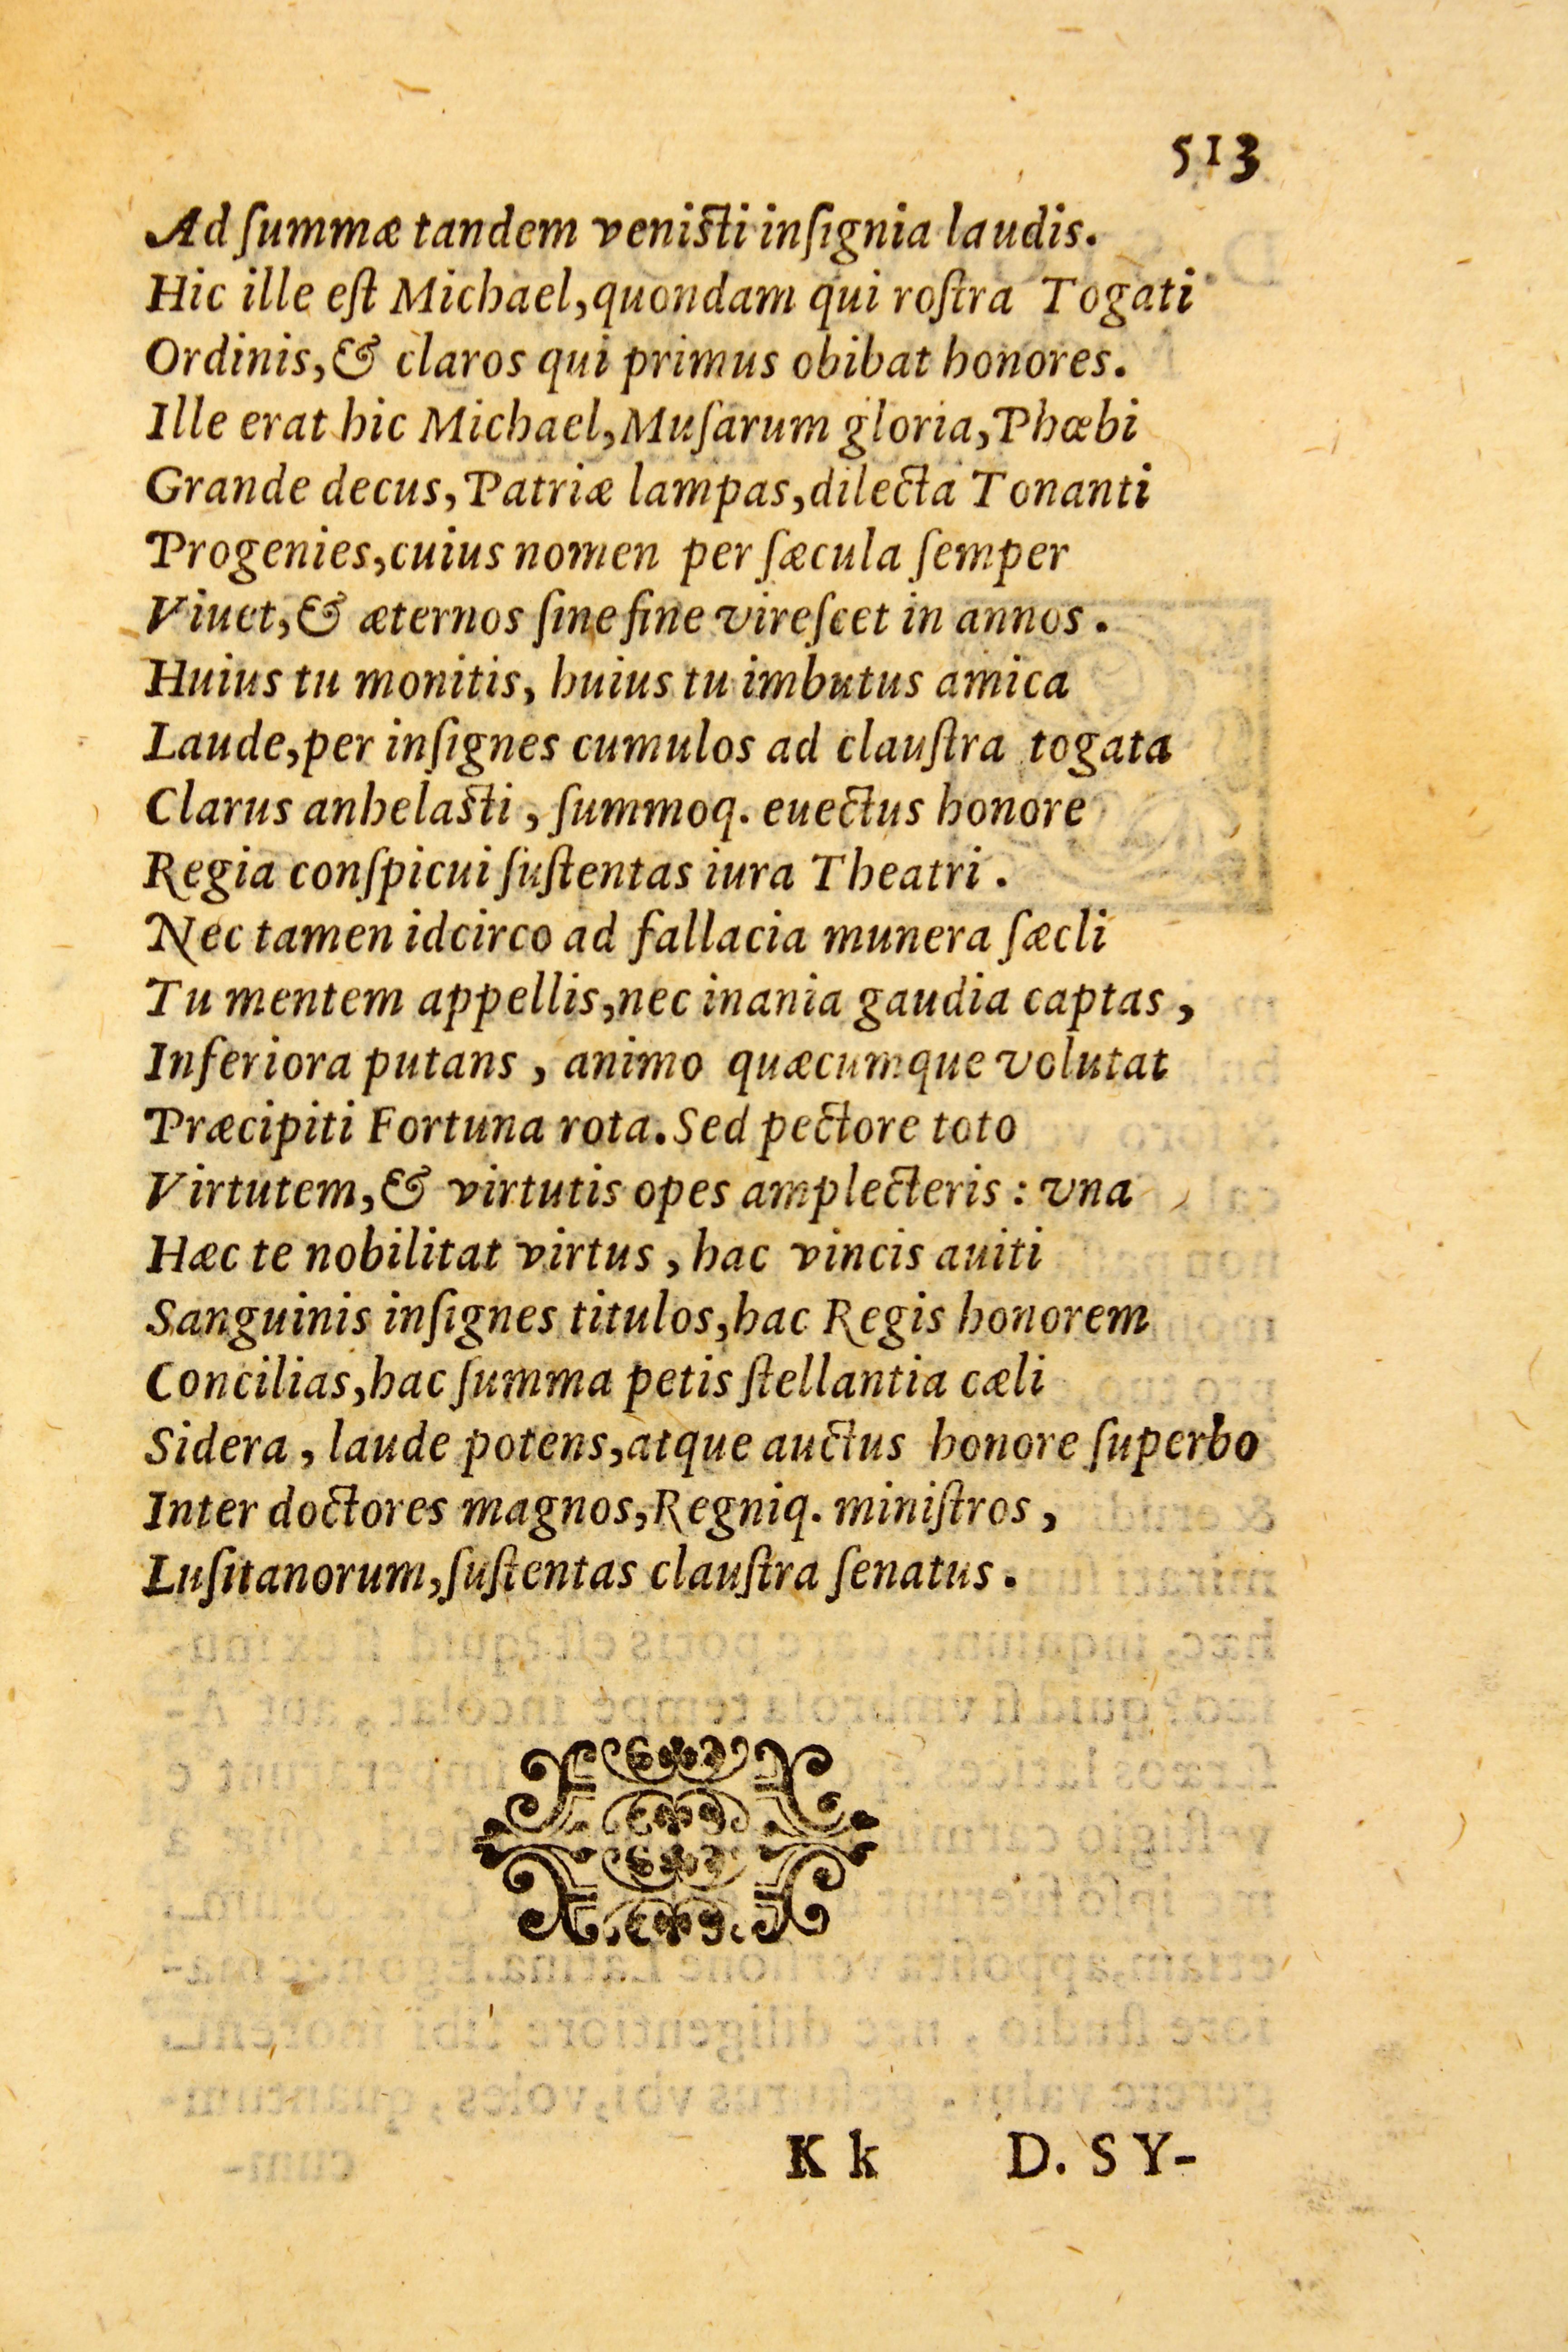 513
Ad ſummæ tandem veniſti inſignia laudis.
Hic ille eſt Michael, quondam qui roſtra Togati
Ordinis, & claros qui primus obibat honores.
Ille erat hic Michael, Muſarum gloria, Phœbi
Grande decus, Patriæ lampas, dilecta Tonanti
Progenies, cuius nomen per ſæcula ſemper
Viuet, & æternos ſine fine vireſcet in annos.
Huius tu monitis, huius tu imbutus amica
Laude, per inſignes cumulos ad clauſtra togata
Clarus anhelaſti, ſummoq. euectus honore
Regia conſpicui ſuſtentas iura Theatri.
Nec tamen idcirco ad fallacia munera ſæcli
Tu mentem appellis, nec inania gaudia captas,
Inferiora putans, animo quæcumque volutat
Præcipiti Fortuna rota. Sed pectore toto
Virtutem, & virtutis opes amplecteris: vna
Hæc te nobilitat virtus, hac vincis auiti
Sanguinis inſignes titulos, hac Regis honorem
Concilias, hac ſumma petis ſtellantia cæli
Sidera, laude potens, atque auctus honore ſuperbo
Inter doctores magnos, Regniq. miniſtros,
Luſitanorum, ſuſtentas clauſtra ſenatus.
Kk D. SY-